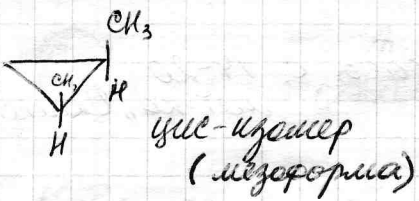 CH₃
CH₃
H
H
цис-изомер
(мезоформа)